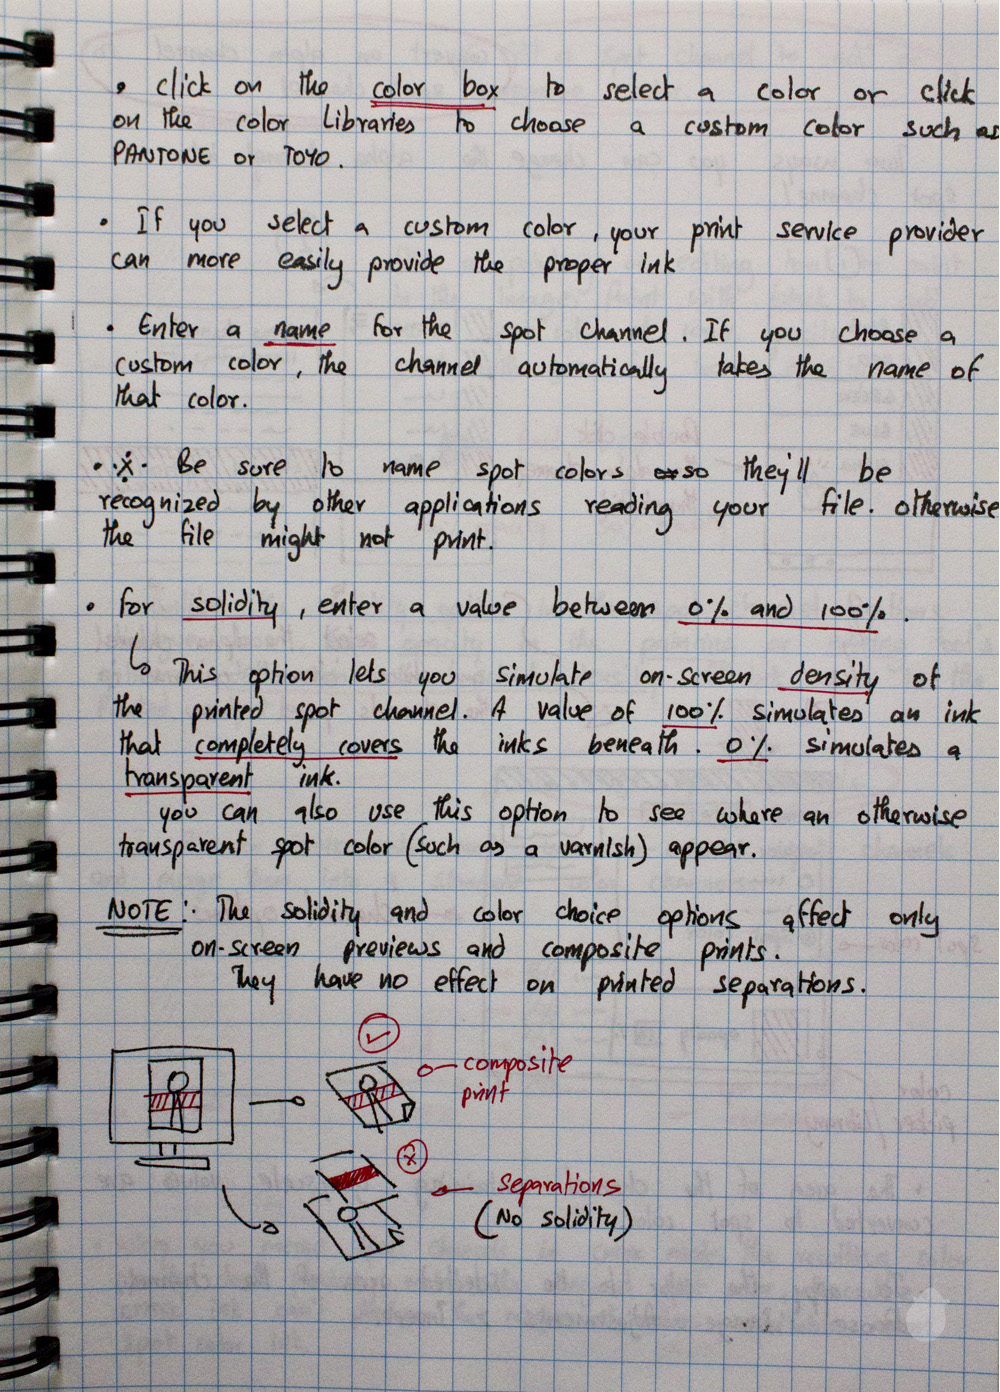 • Click on the color box to select a color or click
on the color Libraries to choose a custom color such as
PANTONE or TOYO.
• If you select a custom color, your print service provider
can more easily provide the proper ink
• Enter a name for the spot channel. If you choose a
custom color, the channel automatically takes the name of
that color.
• ※ Be sure to name spot colors so they'll be
recognized by other applications reading your file. otherwise
the file might not print.
• for solidity, enter a value between 0% and 100%.
↳ This option lets you simulate on-screen density of
the printed spot channel. A value of 100% simulates an ink
that completely covers the inks beneath. 0% simulates a
transparent ink.
you can also use this option to see where an otherwise
transparent spot color (such as a varnish) appear.
NOTE: The solidity and color choice options affect only
on-screen previews and composite prints.
They have no effect on printed separations.
composite
print
separations
(No solidity)